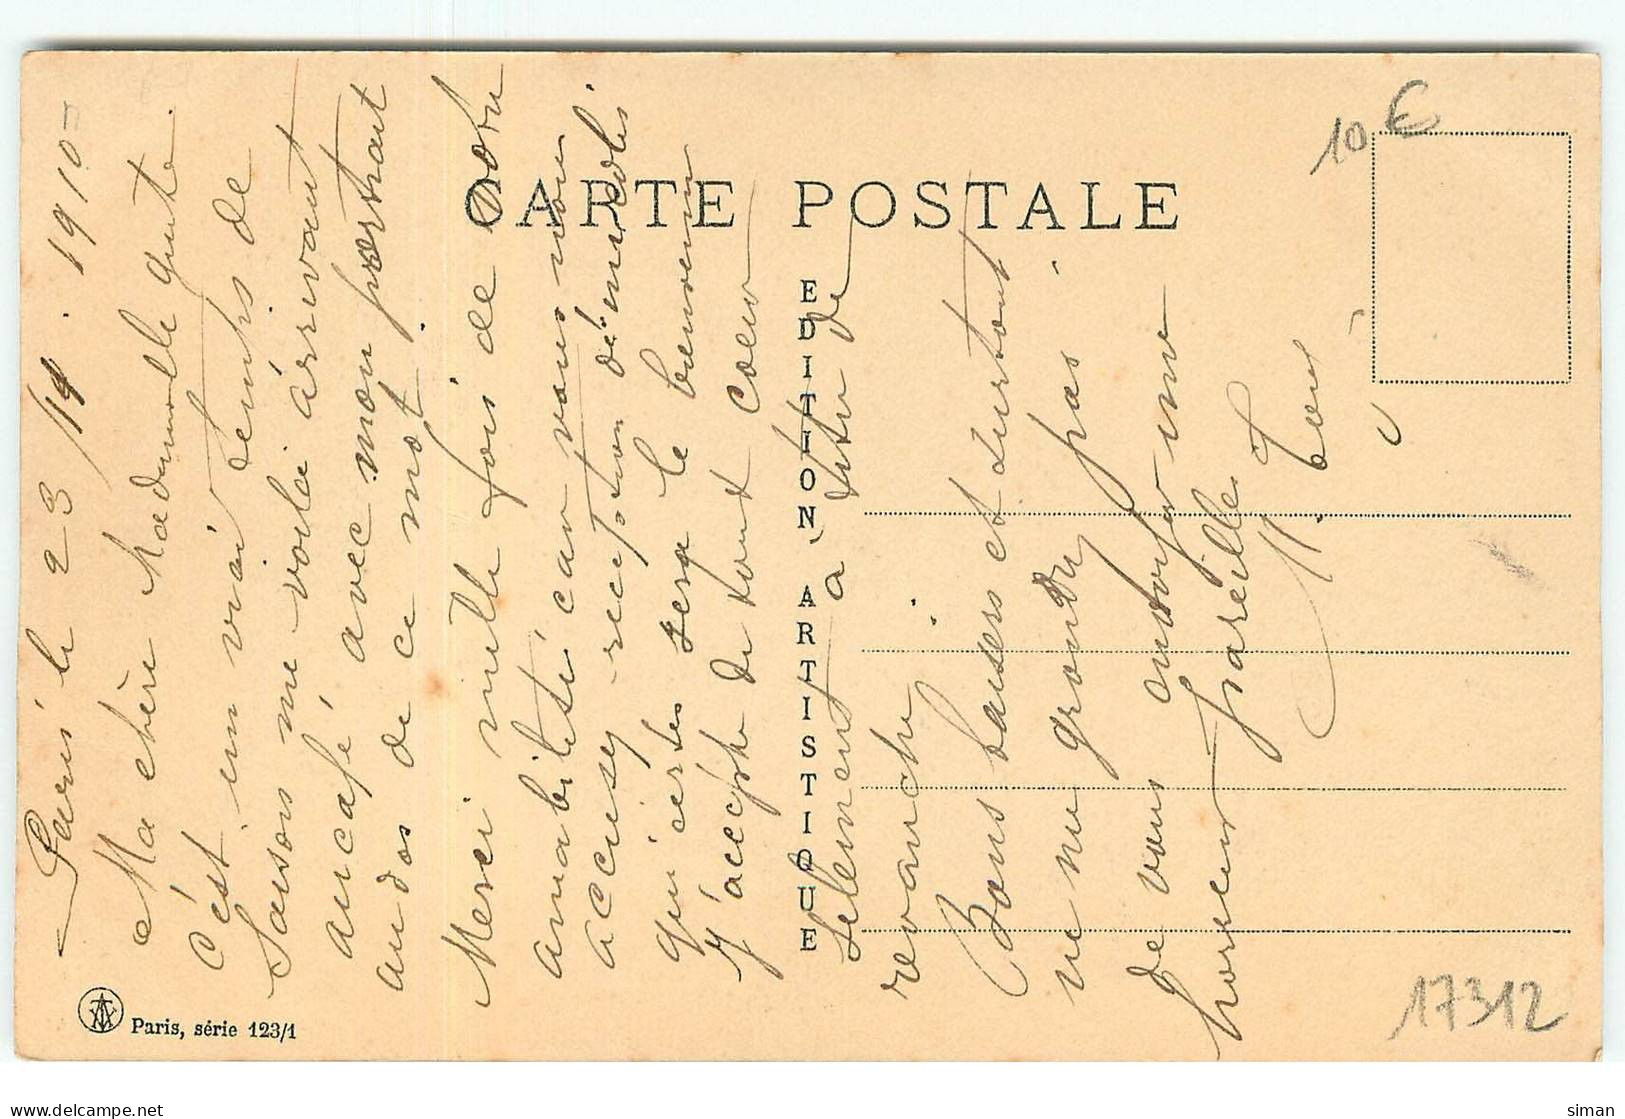 CARTE POSTALE
EDITION ARTISTIQUE
Paris, série 123/1
10 €
17312
Paris le 23/11. 1910
Ma chère Mademoiselle
c'est un vrai temps de
saison me voila arrivant
au café avec mon portrait
au dos de ce mot.
Merci mille fois de votre
amabilité car vous nous
accusez reception de mi colis
qui certes sera le bienvenu
J'accepte de tout coeur
à titre de
revanche
Bons baisers et surtout
ne me grondez pas
de vous envoyer une
horreur pareille
delcampe.net
siman